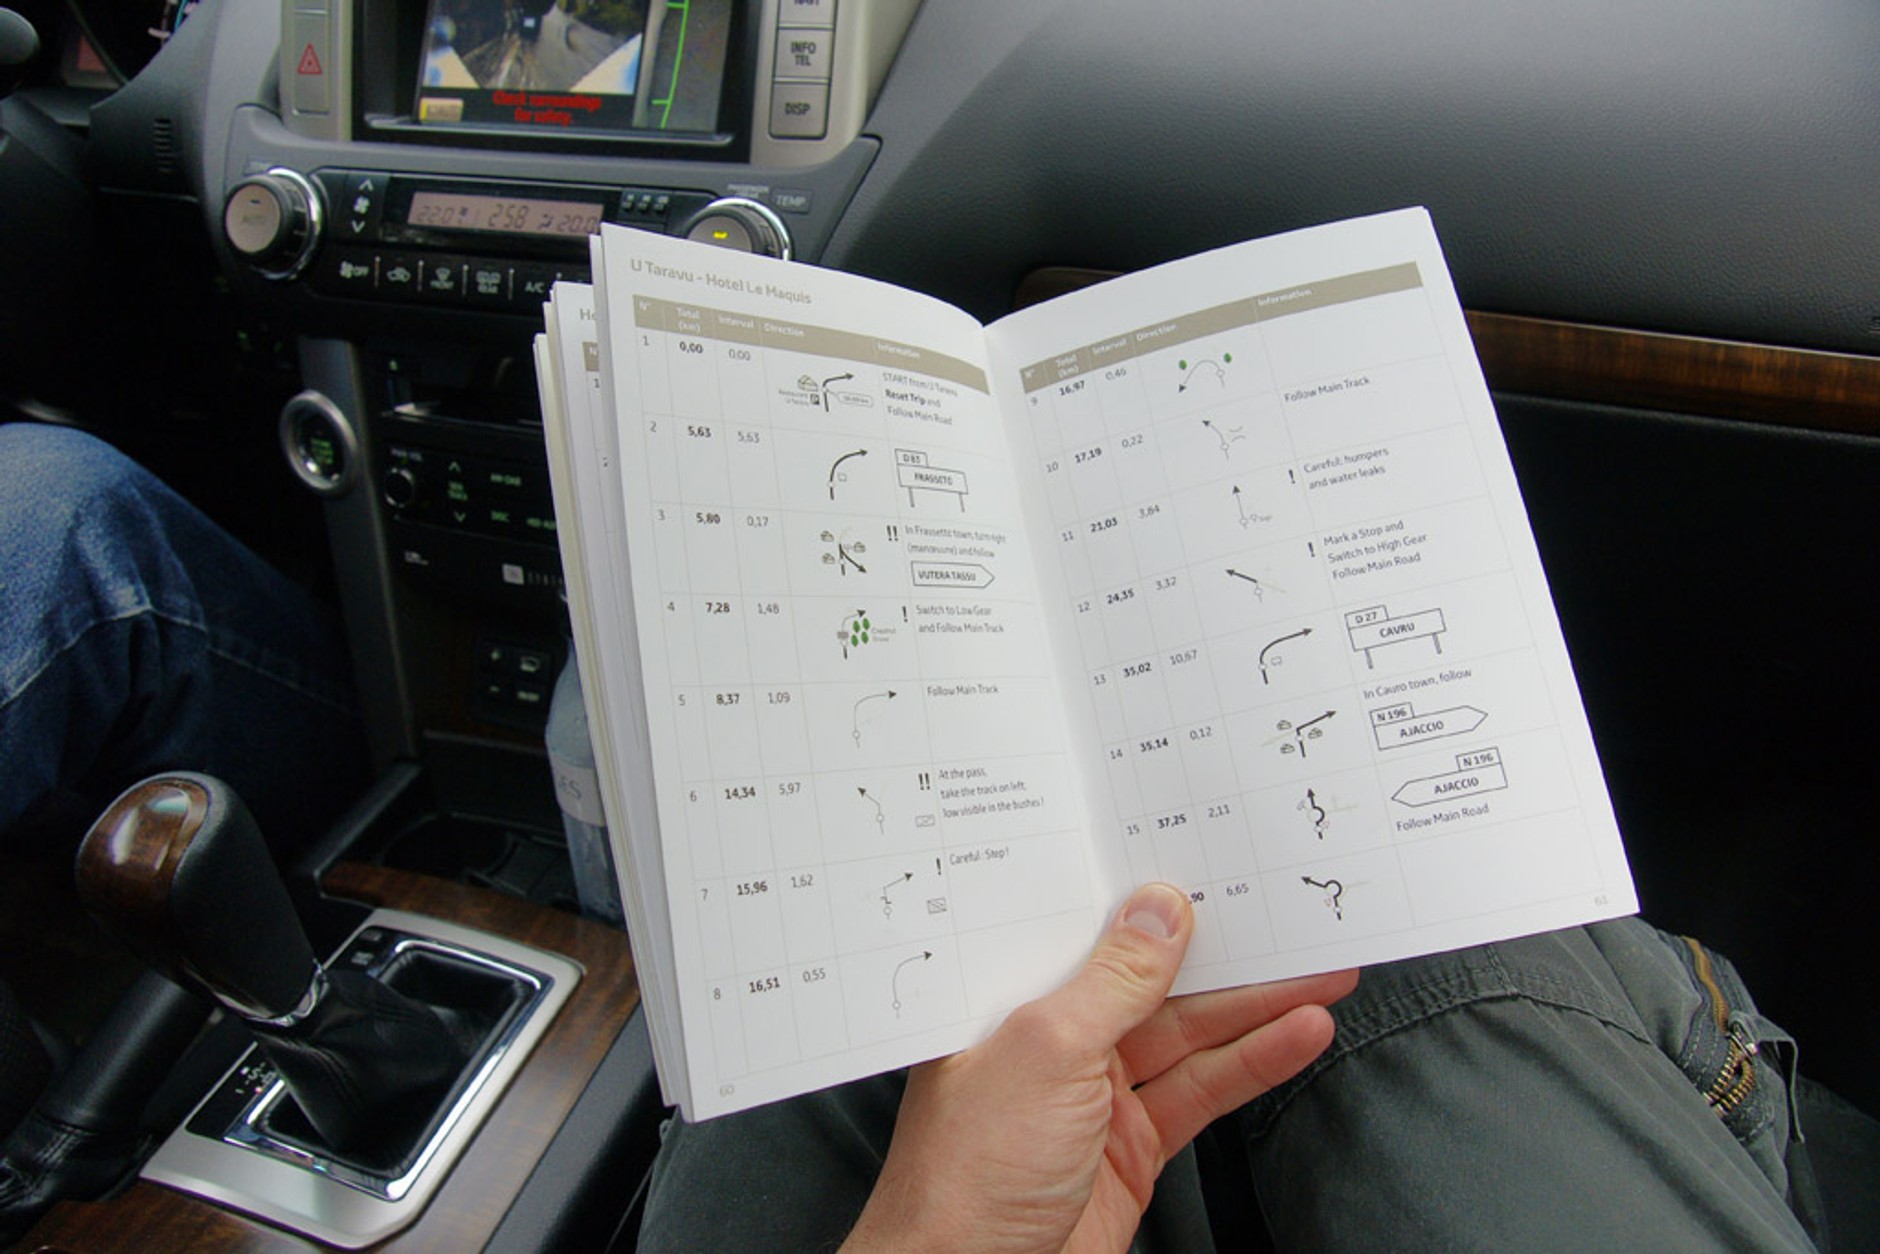 INFO
TEL
DISP
Check surroundings
for safety.
AUTO
PASSENGER
TEMP
22.0
2:58
20.0
OFF
FRONT
REAR
A/C
U Taravu - Hotel Le Maquis
N° Total (km) Interval Direction Information
1 0,00 0,00 START from U Taravu
Reset Trip and
Follow Main Road
Restaurant
U Taravu P
2 5,63 5,63 D 83
FRASSETO
3 5,80 0,17 !! In Frassetto town, turn right
(manœuvre) and follow
VUTERA TASSU
4 7,28 1,48 Chestnut
Grove
! Switch to Low Gear
and Follow Main Track
5 8,37 1,09 Follow Main Track
6 14,34 5,97 !! At the pass,
take the track on left,
low visible in the bushes !
7 15,96 1,62 ! Careful : Step !
8 16,51 0,55
60
N° Total (km) Interval Direction Information
9 16,97 0,46
10 17,19 0,22 Follow Main Track
11 21,03 3,84 ! Careful: humpers
and water leaks
12 24,35 3,32 ! Mark a Stop and
Switch to High Gear
Follow Main Road
13 35,02 10,67 D 27
CAVRU
14 35,14 0,12 In Cauro town, follow
N 196
AJACCIO
15 37,25 2,11 N 196
AJACCIO
Follow Main Road
,90 6,65
61